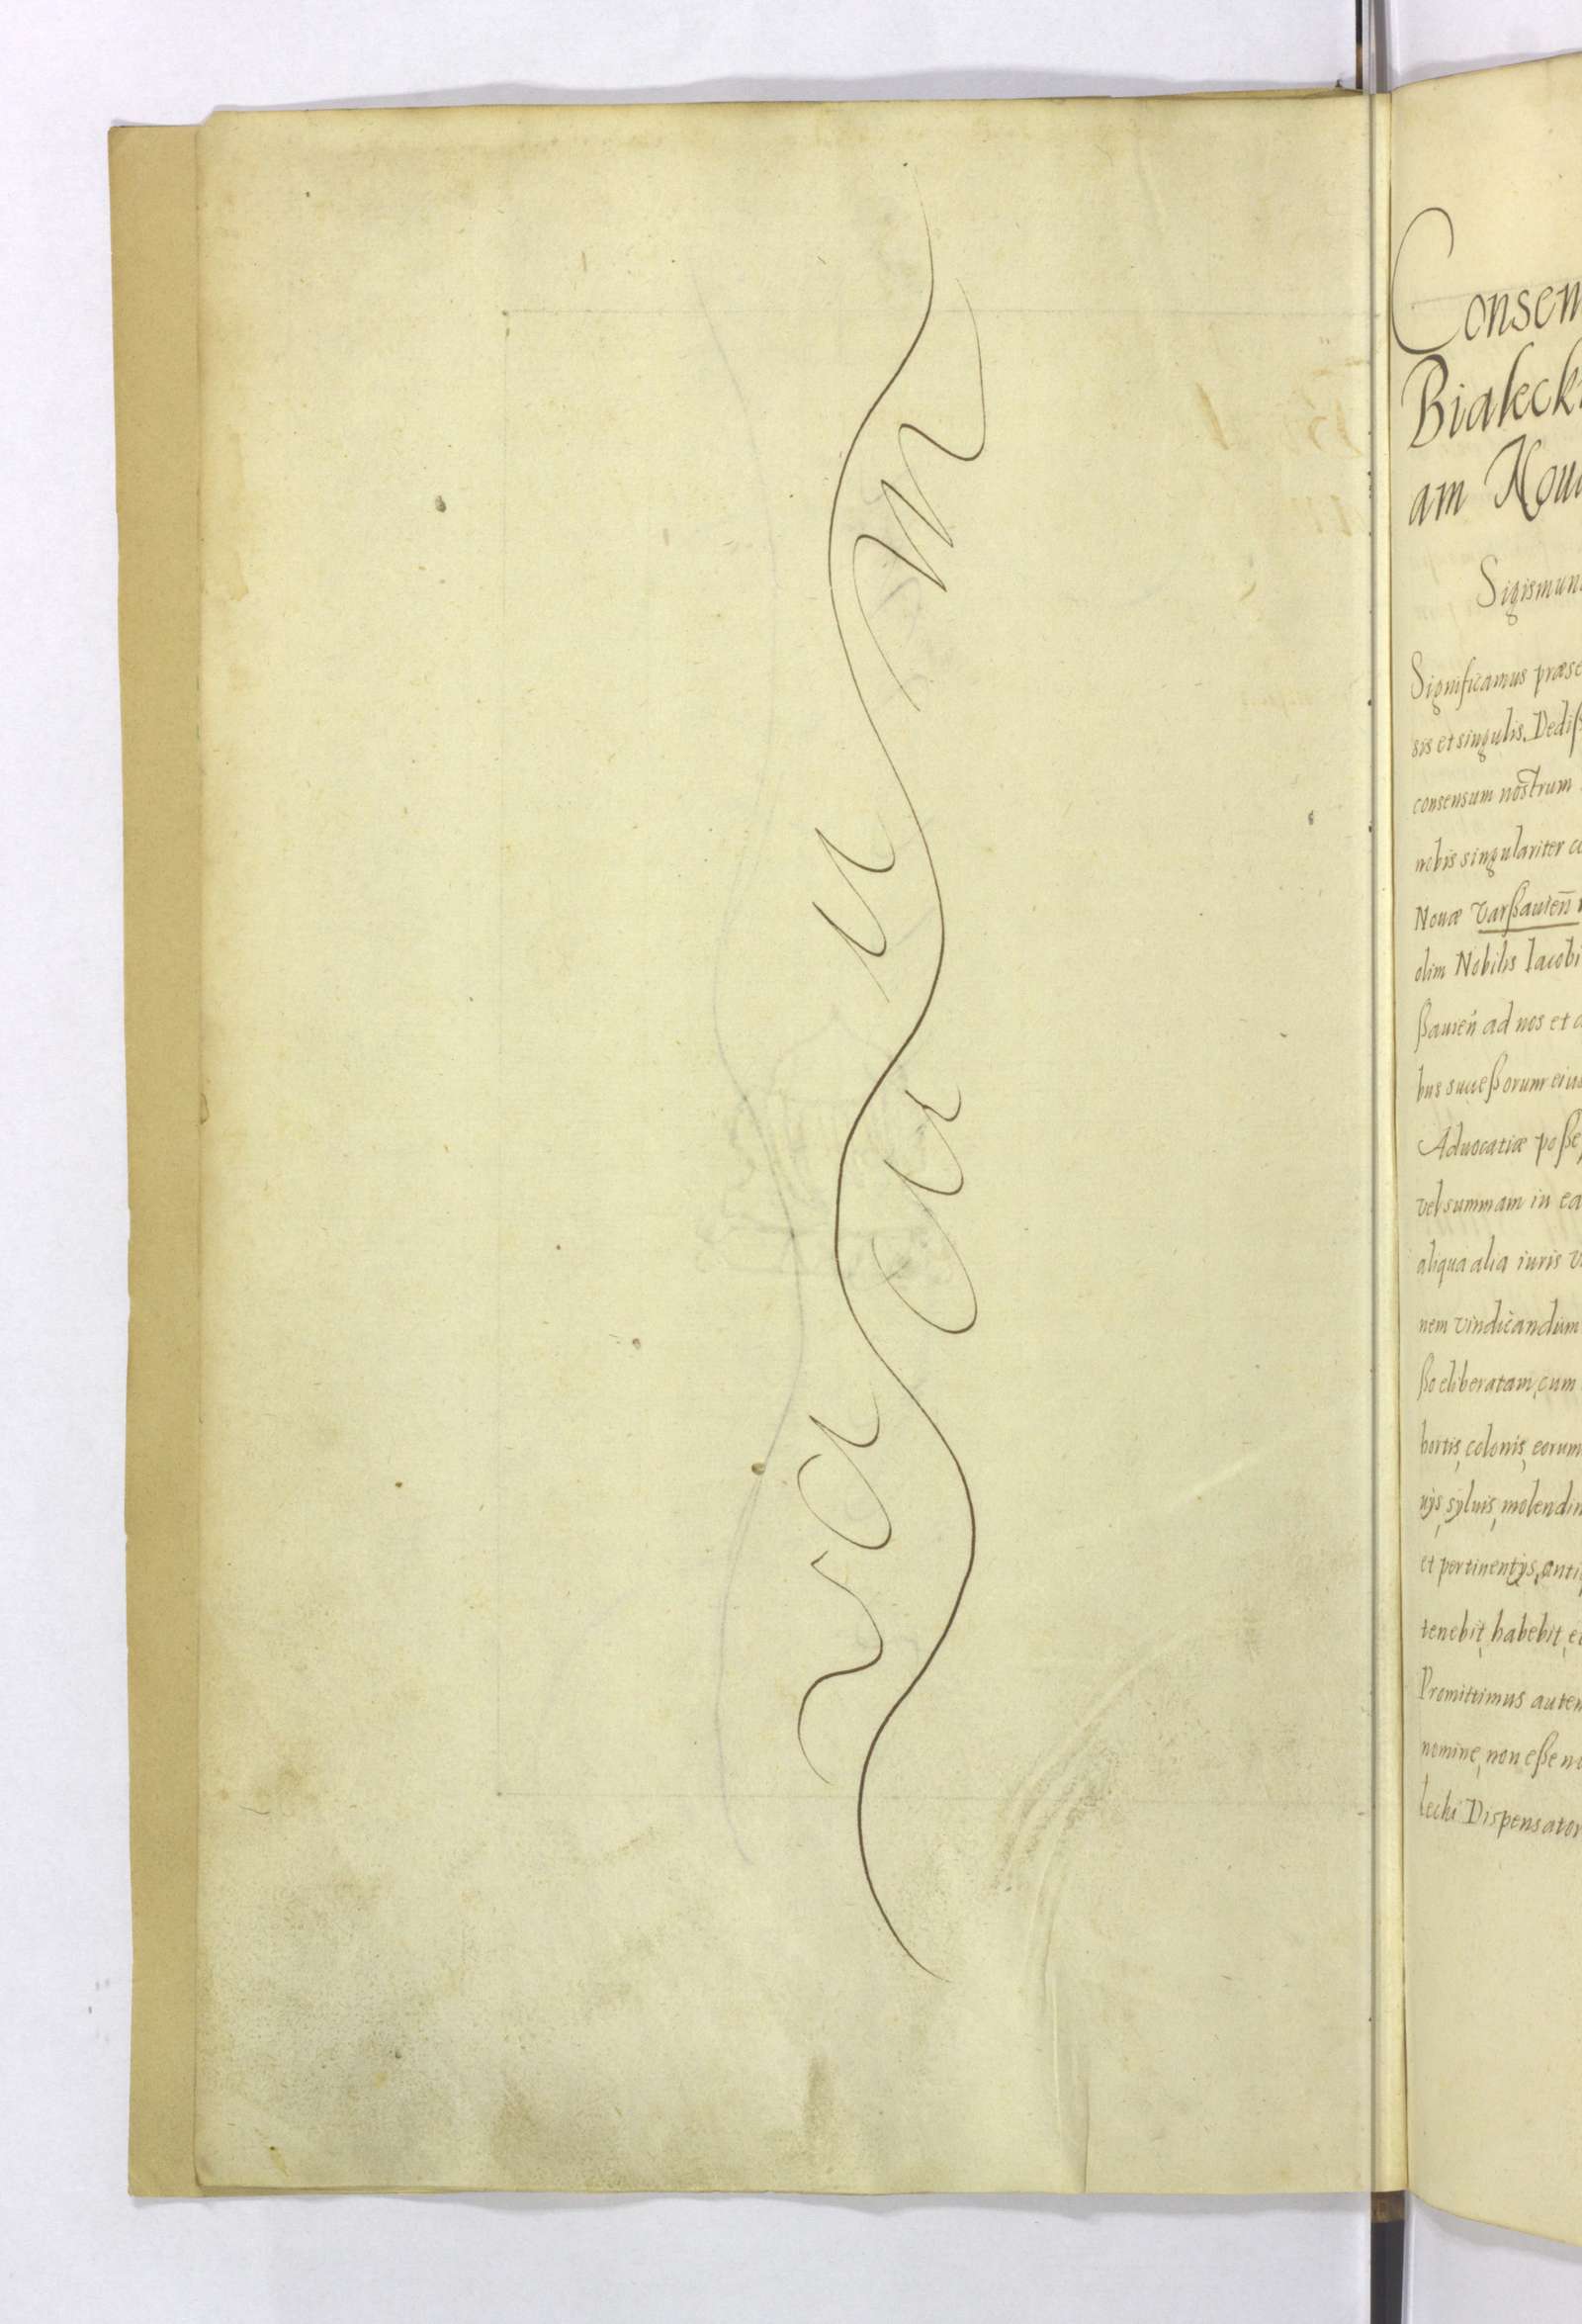 vacuum
Consen
Bialeck
am Nou
Sigismun
Significamus præse
sis et singulis. Dediß
consensum nostrum
nobis singulariter co
Nouæ Varßauien̄
olim Nobilis Iacobi
ßauien̄ ad nos et
bus suceßorum eius
Aduocatiæ poße
vel summam in ea
aliqua alia iuris v
nem vindicandum
ßo eliberatam, cum
hortis, colonis, eorum
uÿs, syluis, molendin
et pertinentÿs, anti
tenebit, habebit, et
Promittimus autem
nomine, non eße no
lecki Dispensator